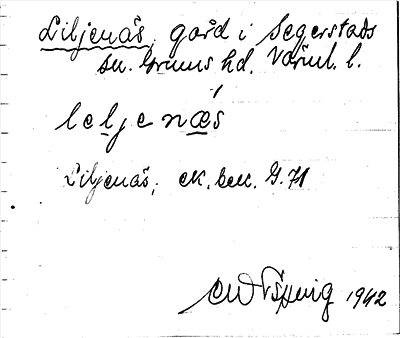 Liljenäs, gård i Segerstads
sn. Grums hd. Värml. l.
lel̲jenǽ̲s
Liljenäs, ek. bek. G. 71
1942